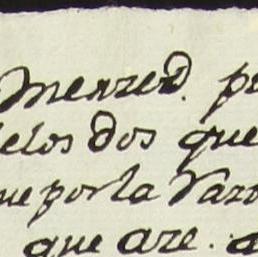 merzed. p
delos dos que
ue por la razo
que aze. a